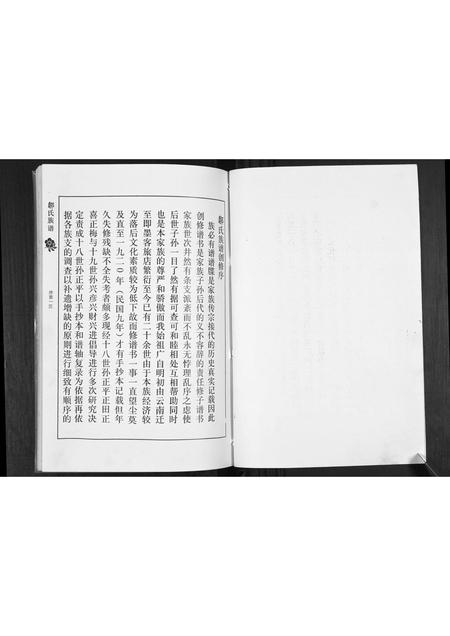 郝氏族谱创修序
族必有谱谱牒是家族传宗接代的历史真实记载因此
创修谱书是家族子孙后代的义不容辞的责任修子谱书
家族世次井然有条支派紊而不乱永无悖理乱序之虑使
后世子孙一目了然有据可查可和睦相处互相帮助同时
也是本家族的尊严和骄傲而我始祖广自明初由云南迁
至即墨客旅店繁衍至今已有二十余世由于本族经济较
为落后文化素质较为低下故而修谱书一事一直望尘莫
及直至一九二〇年（民国九年）才有手抄本记载但年
久失修残缺不全失考者颇多现经十八世孙正平正田正
喜正梅与十九世孙兴彦兴财兴进倡导进行多次研究决
定责成十八世孙正平以手抄本和谱轴复录为依据再依
据各族支的调查以补遗增缺的原则进行细致有顺序的
郝氏族谱